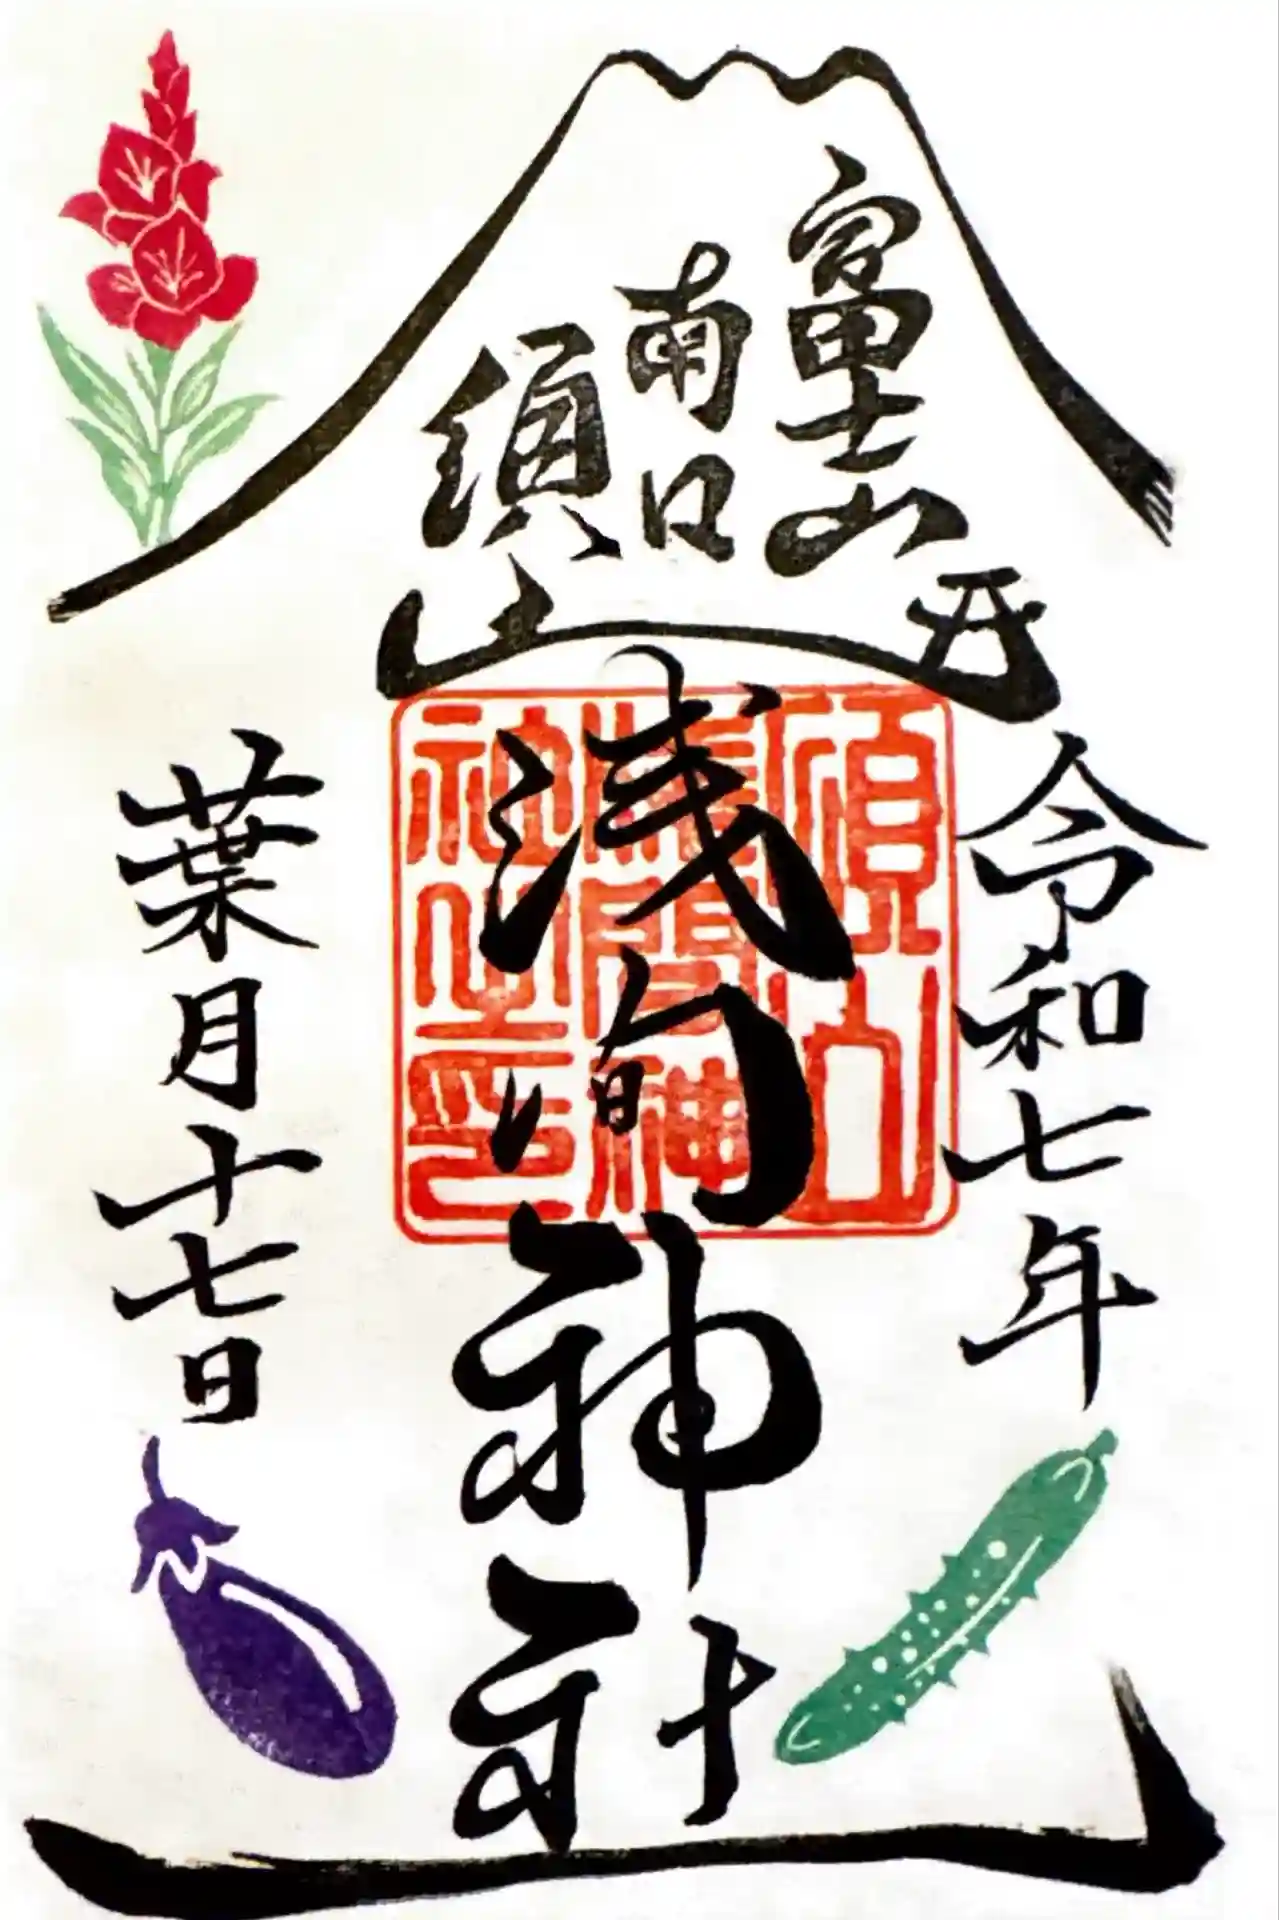 富士山
南口
須山
令和七年
浅間神社
葉月十七日
須山
淺間神
社之印